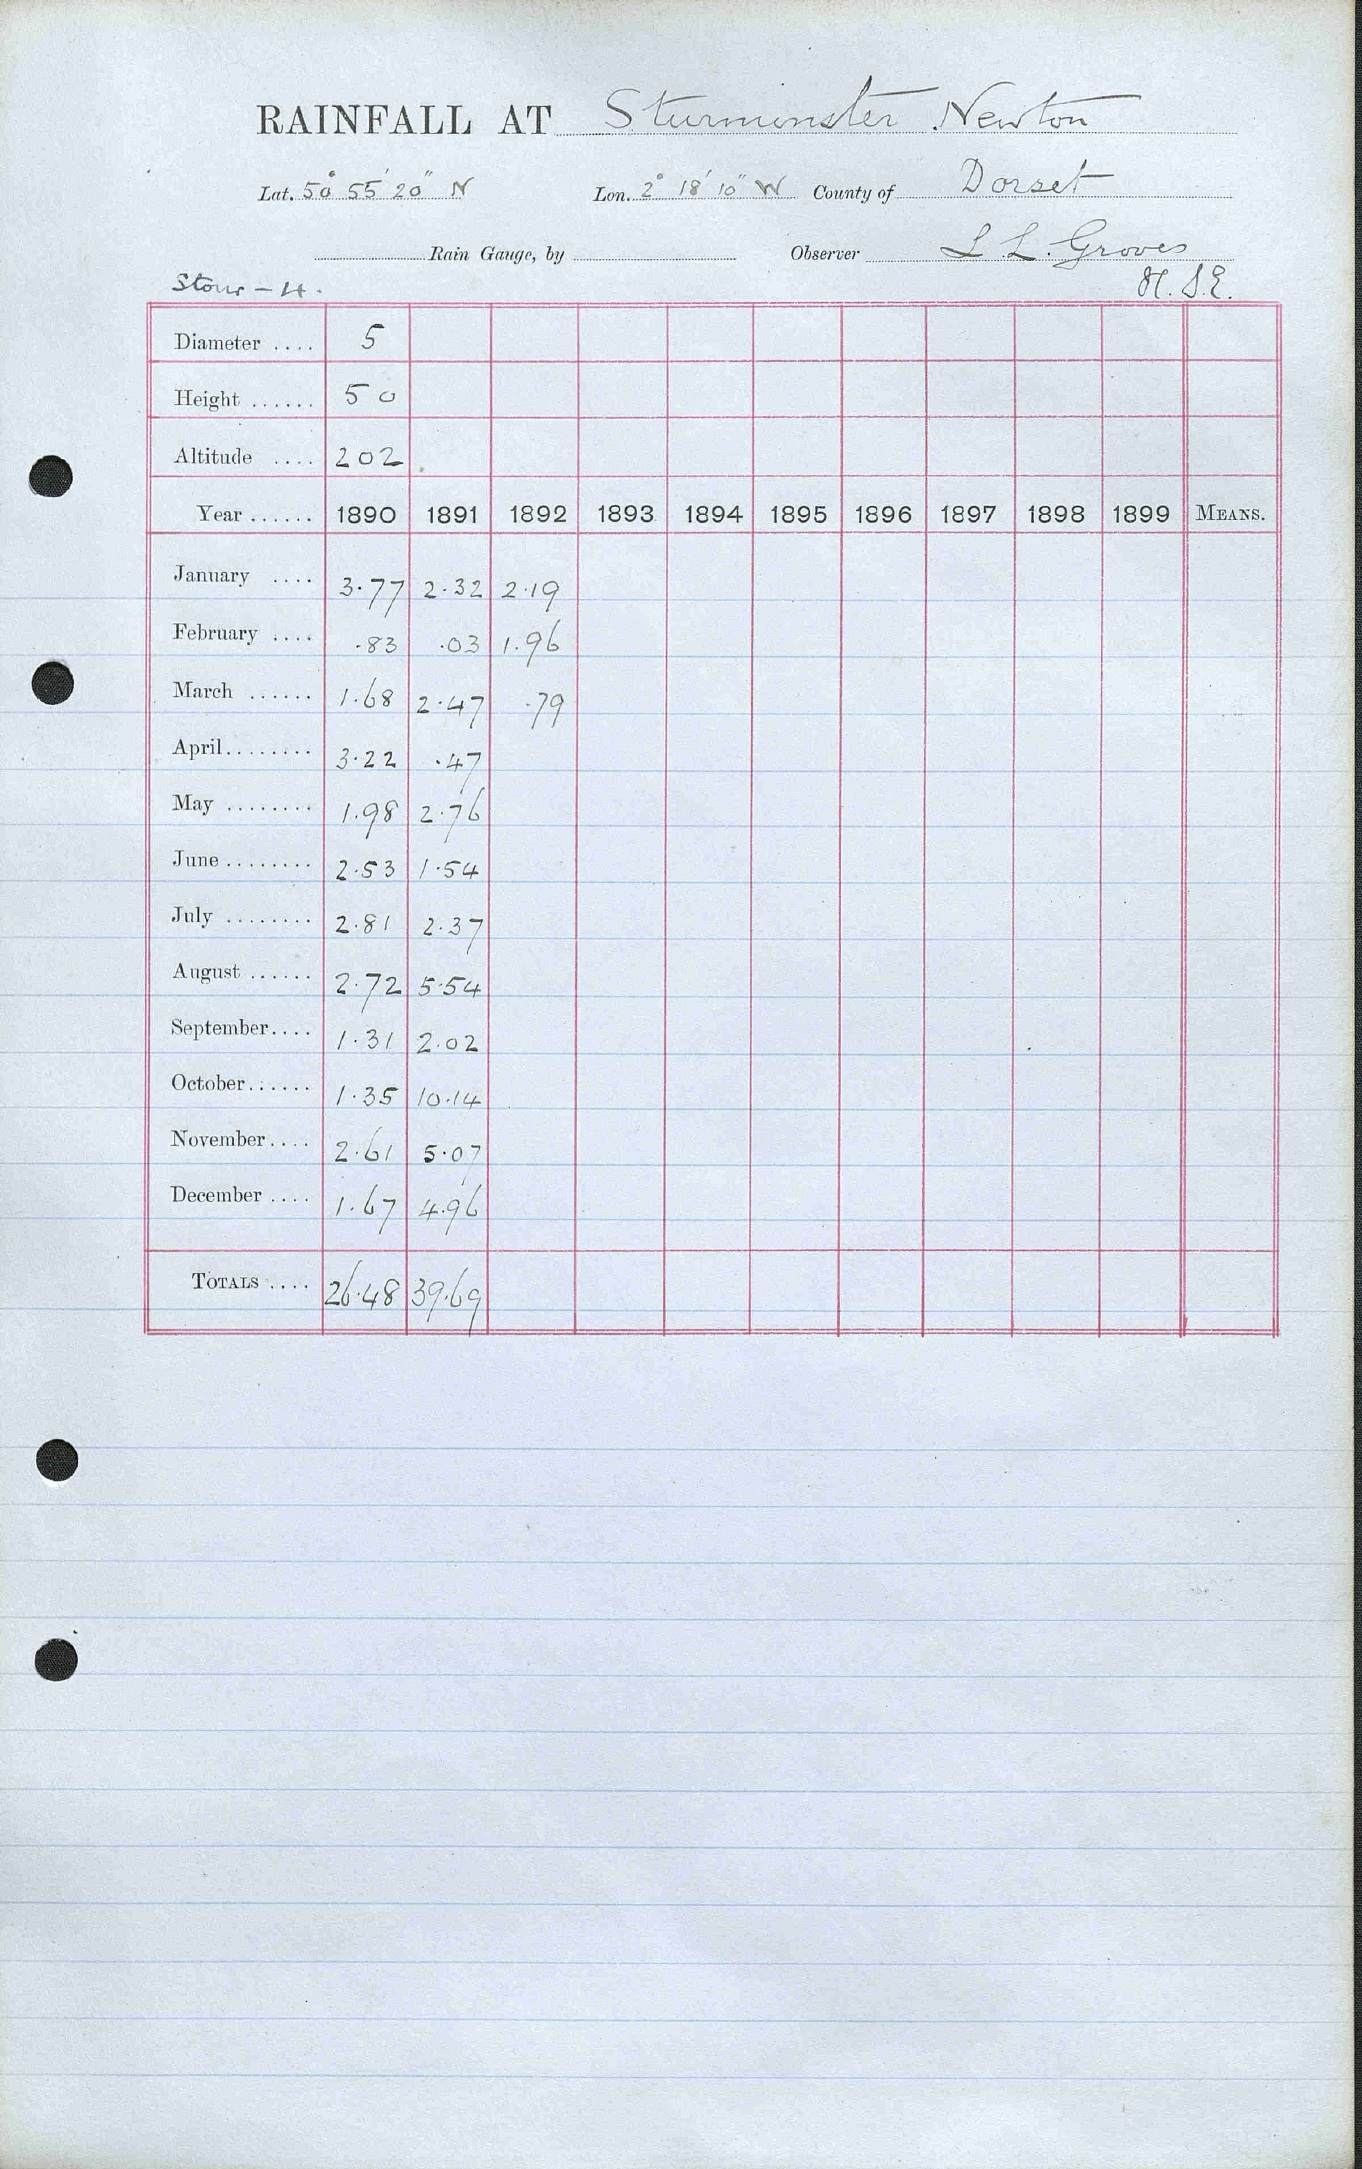 RAINFALL AT Sturminster Newton
Lat. 50° 55' 20" N Lon. 2° 18' 10" W County of Dorset
Rain Gauge, by Observer L L. Groves
Stour - 4. H. S.E.
Diameter .... 5
Height ...... 5 0
Altitude .... 202
Year ...... 1890 1891 1892 1893 1894 1895 1896 1897 1898 1899 MEANS.
January .... 3.77 2.32 2.19
February .... .83 .03 1.96
March ...... 1.68 2.47 .79
April........ 3.22 .47
May ........ 1.98 2.76
June ........ 2.53 1.54
July ........ 2.81 2.37
August ...... 2.72 5.54
September.... 1.31 2.02
October...... 1.35 10.14
November.... 2.61 5.07
December .... 1.67 4.96
TOTALS .... 26.48 39.69